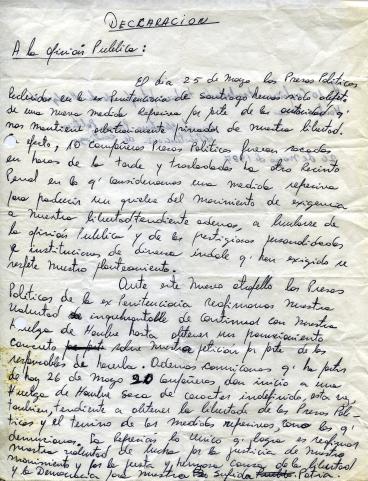 DECLARACION
A la opinión Publica:
El día 25 de Mayo los Presos Politicos
Recluidos en la ex Penitenciaria de Santiago hemos sido objeto
de una nueva medida represiva por pte de las autoridad q'
nos mantiene arbitrariamente privados de nuestra libertad.
efecto, 10 compañeros Presos Politicos fueron sacados
en horas de la tarde y trasladados a otro Recinto
Penal en lo q' consideramos una medida represiva
para producir un quiebre del movimiento de exigencia
a nuestra libertad tendiente ademas, a burlarse de
la opinión Publica y de las prestigiosas personalidades
e instituciones de diversa indole q' han exigido se
respete nuestro planteamiento.
Ante este nuevo atropello los Presos
Politicos de la ex Penitenciaria reafirmamos nuestra
voluntad inquebrantable de continuar con nuestra
Huelga de Hambre hasta obtener un pronunciamiento
concreto sobre nuestra peticion por pte de los
responsables de hacerla. Ademas comunicamos q' ha partir
de hoy 26 de Mayo 20 compañeros dan inicio a una
Huelga de Hambre seca de caracter indefinido, esta va
tambien, tendiente a obtener la libertad de los Presos Poli-
ticos y el termino de las medidas represivas, como las q'
denunciamos. La represión lo unico q' logra es reafirmar
nuestra voluntad de lucha por la justicia de nuestro
movimiento y por la justa y hermosa causa de la libertad
y la Democracia para nuestra sufrida Patria.